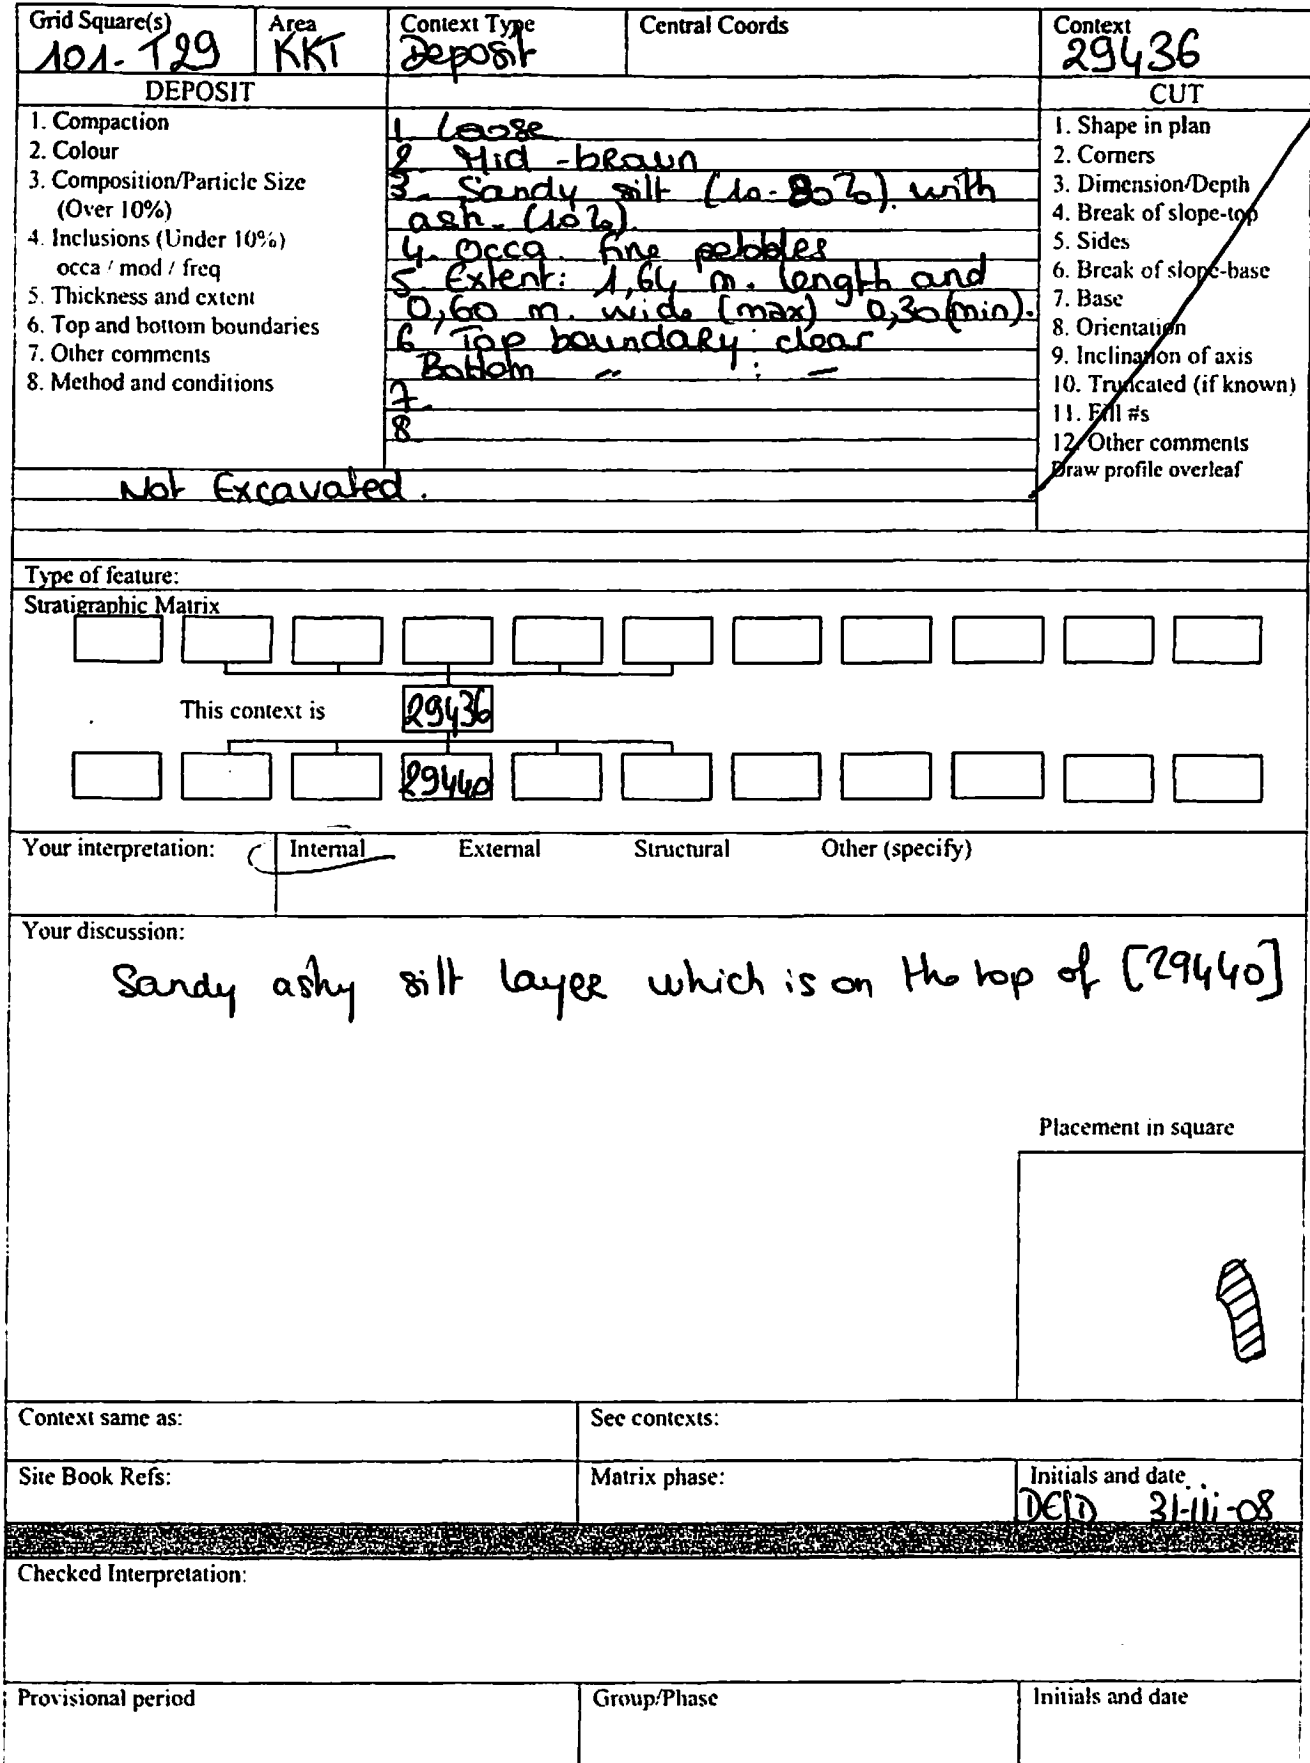 Grid Square(s) Area Context Type Central Coords Context
101-T29 KKT Deposit 29436
DEPOSIT CUT
1. Compaction
2. Colour
3. Composition/Particle Size
(Over 10%)
4. Inclusions (Under 10%)
occa / mod / freq
5. Thickness and extent
6. Top and bottom boundaries
7. Other comments
8. Method and conditions
1 Loose
2 Mid-brown
3. Sandy silt (10-80%). with
ash. (10%)
4. Occa. fine pebbles
5. Extent: 1,64 m. length and
0,60 m. wide (max) 0,30 (min).
6 Top boundary: clear
Bottom " : -
7.
8
Not Excavated.
1. Shape in plan
2. Corners
3. Dimension/Depth
4. Break of slope-top
5. Sides
6. Break of slope-base
7. Base
8. Orientation
9. Inclination of axis
10. Truncated (if known)
11. Fill #s
12. Other comments
Draw profile overleaf
Type of feature:
Stratigraphic Matrix
This context is 29436
29440
Your interpretation: Internal External Structural Other (specify)
Your discussion:
Sandy ashy silt layer which is on the top of [29440]
Placement in square
Context same as: See contexts:
Site Book Refs: Matrix phase: Initials and date
31-iii-08
Checked Interpretation:
Provisional period Group/Phase Initials and date